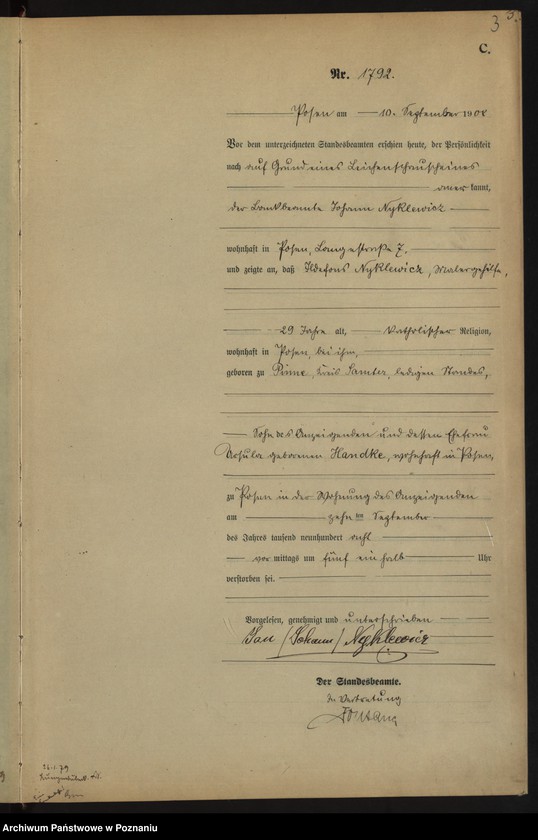 3
C.
Nr. 1792.
Posen am 10. September 1908
Vor dem unterzeichneten Standesbeamten erschien heute, der Persönlichkeit
nach auf Grund eines Leichenschauscheines
anerkannt,
der Bankbeamte Johann Nyklewicz
wohnhaft in Posen, Langestraße 7.
und zeigte an, daß Ildefons Nyklewicz, Malergehilfe,
29 Jahre alt, katholischer Religion,
wohnhaft in Posen, bei ihm,
geboren zu Pinne, Kreis Samter, ledigen Standes,
Sohn des Anzeigenden und dessen Ehefrau
Ursula geborenen Handke, wohnhaft in Posen,
zu Posen in der Wohnung des Anzeigenden
am zehnten September
des Jahres tausend neunhundert acht
vormittags um fünf ein halb Uhr
verstorben sei.
Vorgelesen, genehmigt und unterschrieben
Jan /Johann/ Nyklewicz
Der Standesbeamte.
In Vertretung
26.1.79
Archiwum Państwowe w Poznaniu